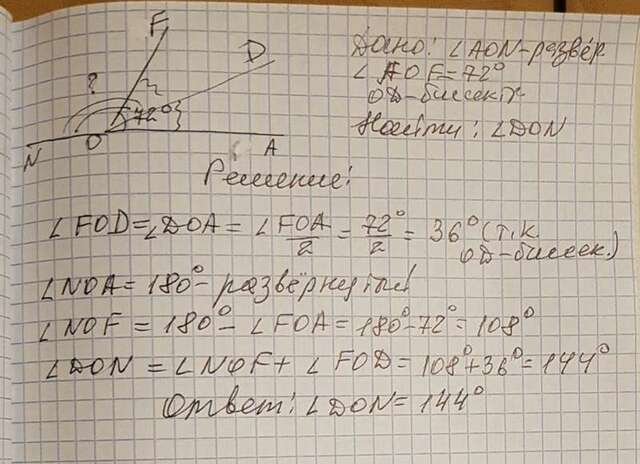 F
D
?
72°
N
O
A
Дано: ∠AON-развёр
∠AOF=72°
OD-биссектр.
Найти: ∠DON
Решение:
∠FOD=∠DOA = ∠FOA/2 = 72°/2 = 36° (т.к.
OD-биссек.)
∠NOA=180°-развёрнутый
∠NOF = 180°- ∠FOA = 180°-72°=108°
∠DON = ∠NOF+ ∠FOD=108°+36°=144°
Ответ: ∠DON=144°